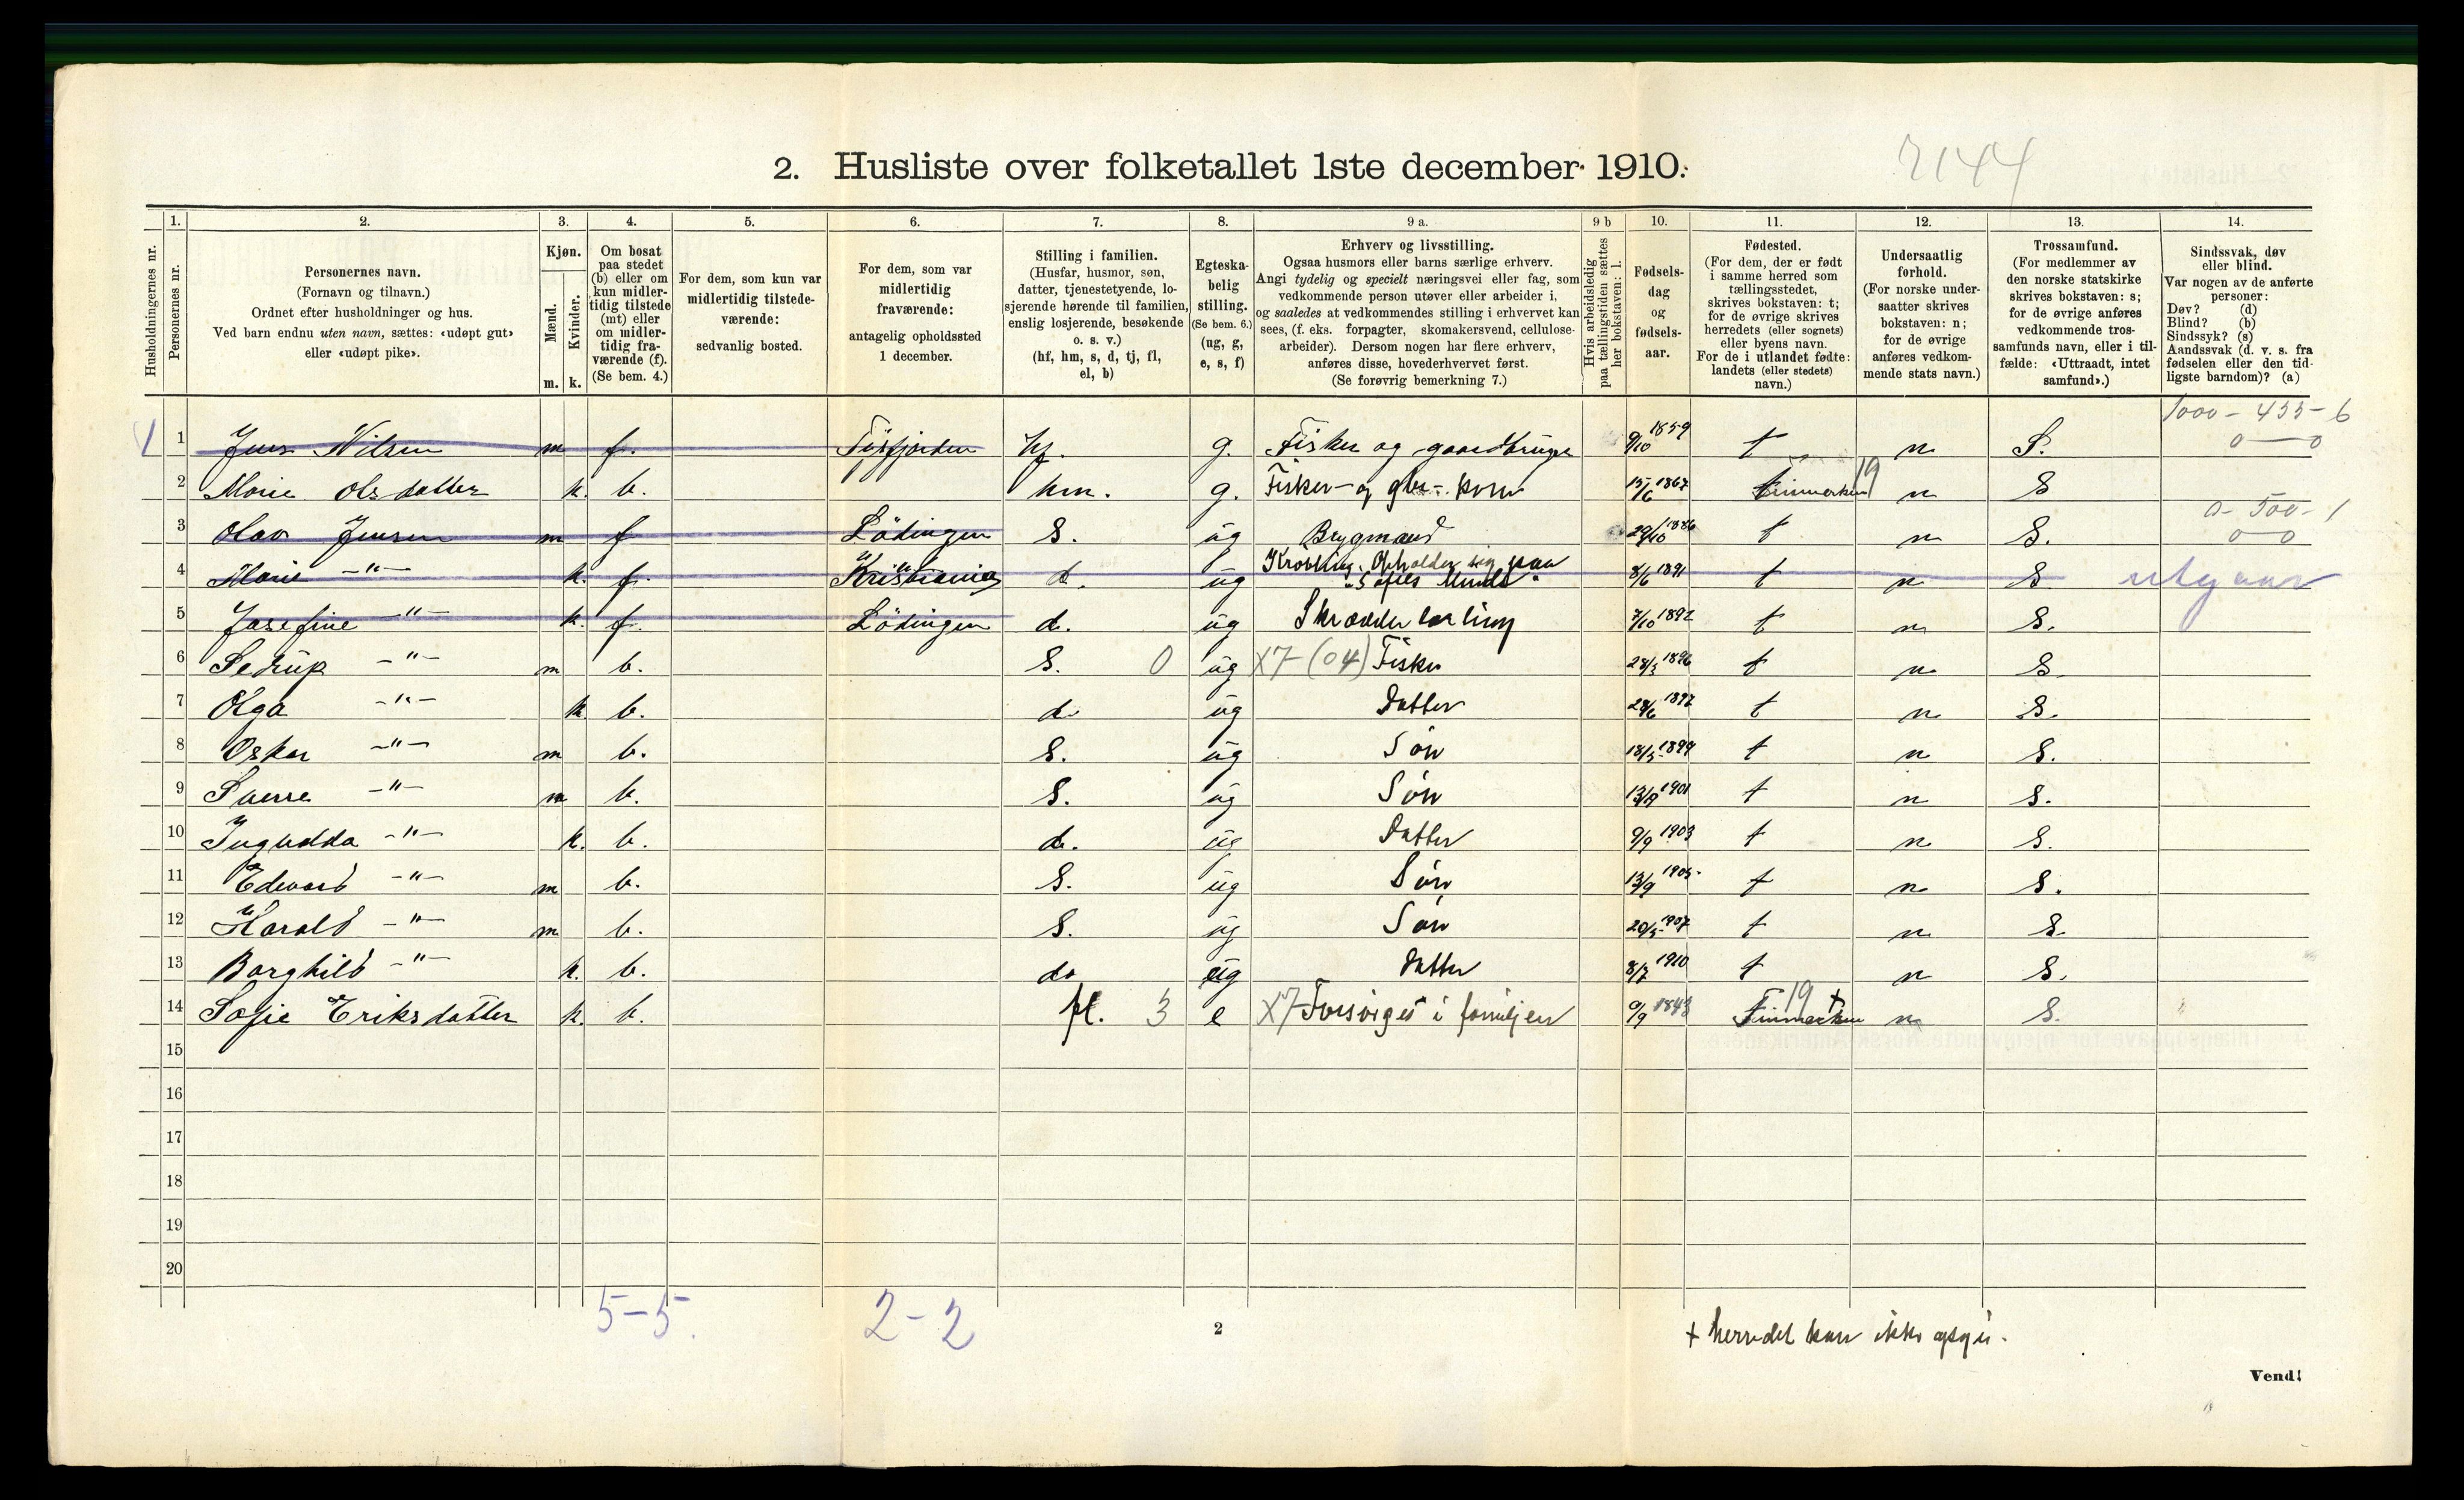 2144
2. Husliste over folketallet 1ste december 1910.
1. 2. 3. 4. 5. 6. 7. 8. 9 a. 9 b 10. 11. 12. 13. 14.
Husholdningernes nr.
Personernes nr.
Personernes navn.
(Fornavn og tilnavn.)
Ordnet efter husholdninger og hus.
Ved barn endnu uten navn, sættes: «udøpt gut»
eller «udøpt pike».
Kjøn.
Mænd.
Kvinder.
m. k.
Om bosat
paa stedet
(b) eller om
kun midler-
tidig tilstede
(mt) eller
om midler-
tidig fra-
værende (f).
(Se bem. 4.)
For dem, som kun var
midlertidig tilstede-
værende:
sedvanlig bosted.
For dem, som var
midlertidig
fraværende:
antagelig opholdssted
1 december.
Stilling i familien.
(Husfar, husmor, søn,
datter, tjenestetyende, lo-
sjerende hørende til familien,
enslig losjerende, besøkende
o. s. v.)
(hf, hm, s, d, tj, fl,
el, b)
Egteska-
belig
stilling.
(Se bem. 6.)
(ug, g,
e, s, f)
Erhverv og livsstilling.
Ogsaa husmors eller barns særlige erhverv.
Angi tydelig og specielt næringsvei eller fag, som
vedkommende person utøver eller arbeider i,
og saaledes at vedkommendes stilling i erhvervet kan
sees, (f. eks. forpagter, skomakersvend, cellulose-
arbeider). Dersom nogen har flere erhverv,
anføres disse, hovederhvervet først.
(Se forøvrig bemerkning 7.)
Hvis arbeidsledig
paa tællingstiden sættes
her bokstaven: l.
Fødsels-
dag
og
fødsels-
aar.
Fødested.
(For dem, der er født
i samme herred som
tællingsstedet,
skrives bokstaven: t;
for de øvrige skrives
herredets (eller sognets)
eller byens navn.
For de i utlandet fødte:
landets (eller stedets)
navn.)
Undersaatlig
forhold.
(For norske under-
saatter skrives
bokstaven: n;
for de øvrige
anføres vedkom-
mende stats navn.)
Trossamfund.
(For medlemmer av
den norske statskirke
skrives bokstaven: s;
for de øvrige anføres
vedkommende tros-
samfunds navn, eller i til-
fælde: «Uttraadt, intet
samfund».)
Sindssvak, døv
eller blind.
Var nogen av de anførte
personer:
Døv? (d)
Blind? (b)
Sindssyk? (s)
Aandssvak (d. v. s. fra
fødselen eller den tid-
ligste barndom)? (a)
1000 - 455 - 6
1 1 Jens Nilsen m f. Tysfjorden hf. g. Fisker og gaardbruger 9/10 1859 t n S. 0 — 0
2 Marie Olsdatter k. b. hm. g. Fisker- og gbr.- kone 15/6 1867 Finmarken 19 n S
0 - 500 - 1
3 Olav Jensen m f Lödingen S. ug Bygmand 29/10 1886 t n S. 0 — 0
4 Marie -"- k. f. Kristiania d. ug Opholder sig paa 8/6 1891 t n S utgaar
5 Josefine -"- k. f. Lödingen d. ug Skrædderlærling 7/10 1892 t n S.
6 Sedrup -"- m b. S. 0 ug X7-(04) Fisker 28/3 1896 t n S.
7 Olga -"- k b. d. ug Datter 28/6 1897 t n S.
8 Oskar -"- m b. S. ug Sön 18/5 1899 t n S.
9 Sverre -"- m b. S. ug Sön 13/9 1901 t n S.
10 -"- k. b. d. ug Datter 9/9 1903 t n S.
11 Edward -"- m b. S. ug Sön 13/9 1905 t n S.
12 Harald -"- m b. S. ug Sön 20/5 1907 t n S.
13 Borghild -"- k. b. d. ug Datter 8/7 1910 t n S.
14 Sofie Eriksdatter k. b. fl. 3 e X7 Forsörges i familjen 9/9 1843 Finmarken 19 + n S.
15
16
17
18
19
20
5-5. 2-2
2
+ herredet kan ikke opgis.
Vend!